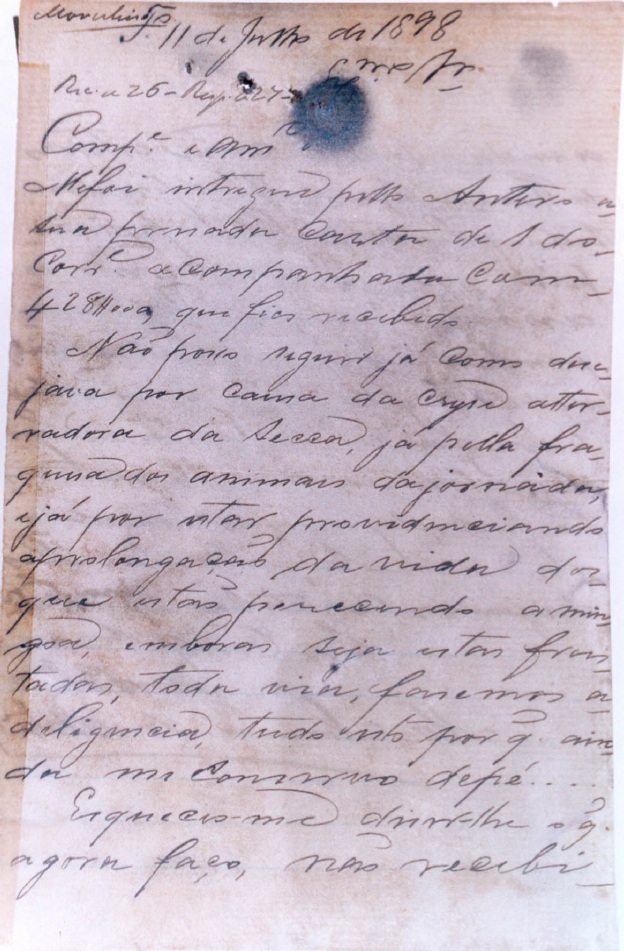 11 de Julho de 1898
Exmo Sr.
Rec. a 26 - Resp. a 27
Comp.e e Am.o
Me foi intregue pello Antero a
sua presada Carta de 1 do
Corr.e acompanhada Com
428#000, que fica recebido.
Não posso seguir já Como dese-
java por causa da Cryse atter-
radora da Secca, já pella fra-
quesa dos animais da jornada,
e já por estar providenciando
aprolongação da vida dos
que estão perecendo a min
goa, embora seja estas frus
tadas, toda via, fasemos a
deligencia, tudo isto por q. ain-
da me Conservo de pé....
Esqueceu-me diser-lhe o q.
agora faço, não recebi